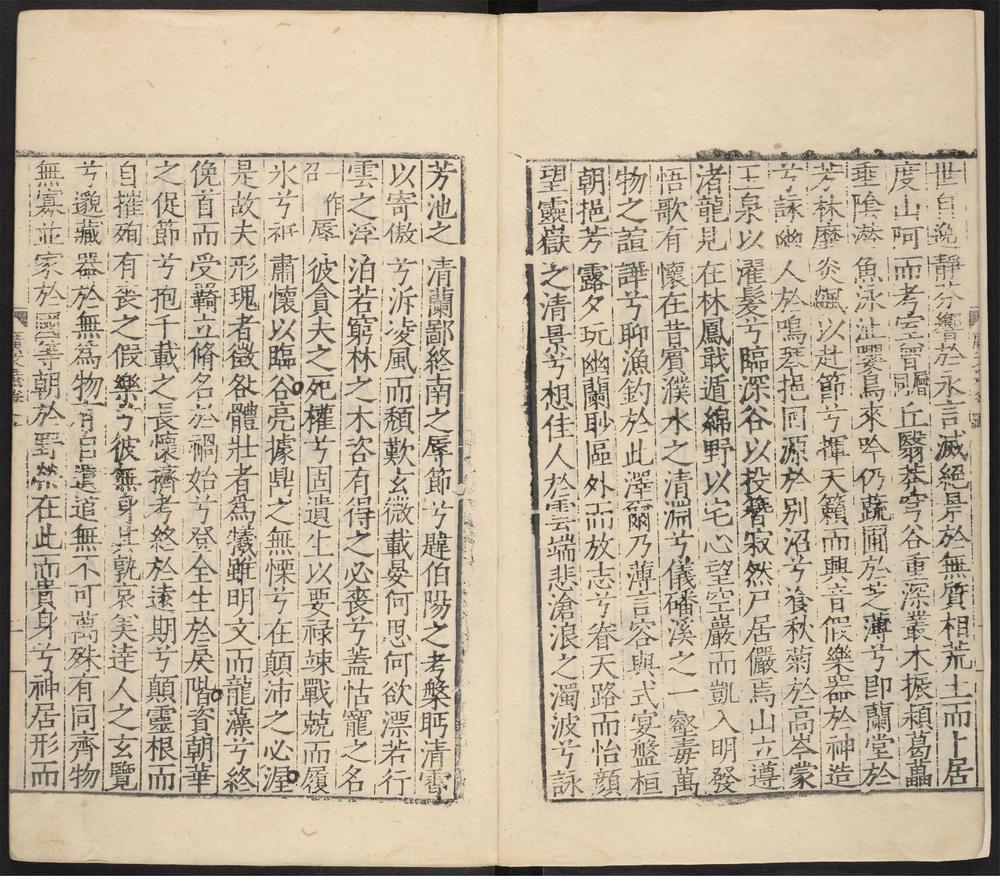 世自逸靜芬響於永言滅絕景於無質相荒土而卜居
度山阿而考室曾丘翳薈穹谷重深叢木振穎葛藟
垂陰潛魚泳沚嚶鳥來吟仍疏圃於芝薄兮即蘭堂於
芳林靡炎飈以赴節兮揮天籟而興音假樂器於神造
兮詠幽人於鳴琴挹回源於別沼兮飡秋菊於高岑蒙
玉泉以濯髮兮臨深谷以投簪寂然尸居儼焉山立遵
渚龍見在林鳳戢遁綿野以宅心望空巖而凱入明發
悟歌有懷在昔賓濮水之清淵兮儀磻溪之一壑毒萬
物之諠譁兮聊漁釣於此澤爾乃薄言容與式宴盤桓
朝挹芳露夕玩幽蘭眇區外而放志兮眷天路而怡顏
望靈嶽之清景兮想佳人於雲端悲滄浪之濁波兮詠
芳池之清蘭鄙終南之辱節兮韙伯陽之考槃眄清霄
以寄傲兮泝凌風而頹歎玄微載晏何思何欲漂若行
雲之浮泊若窮林之木咨有得之必喪兮蓋怙寵之名
一作辱召彼貪夫之死權兮固遺生以要祿竦戰兢而履
冰兮祇肅懷以臨谷亮據鼎之無慄兮在顛沛之必渥
是故夫形瑰者徵咎體壯者為犧雖明文而龍藻兮終
俛首而受羈立脩名於禍始兮登全生於戾階資朝華
之促節兮抱千載之長懷擠考終於遠期兮顛靈根而
自摧殉有喪之假樂兮彼無身其孰哀美達人之玄覽
兮邈藏器於無為物自遺道無不可萬殊有同齊物
無寡並家於國等朝於野榮在此而貴身兮神居形而